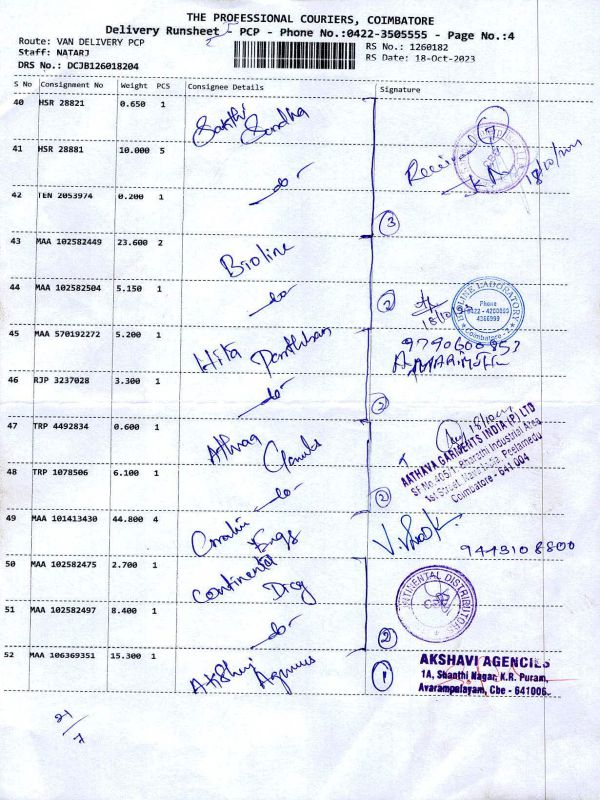 THE PROFESSIONAL COURIERS, COIMBATORE
Delivery Runsheet - PCP - Phone No.:0422-3505555 - Page No.:4
Route: VAN DELIVERY PCP
RS No.: 1260182
Staff: NATARJ
RS Date: 18-Oct-2023
DRS No.: DCJB126018204
S No Consignment No Weight PCS Consignee Details Signature
40 HSR 28821 0.650 1 Sakthi Sandha
41 HSR 28881 10.000 5 -do- Received
18/10/2023
42 TEN 2053974 0.200 1 -do-
3
43 MAA 102582449 23.600 2 Bioline
44 MAA 102582504 5.150 1 -do- 2 18/10/23
BIOLINE LABORATORY
Phone
0422 - 4200003
4366999
Coimbatore - 2
45 MAA 570192272 5.200 1 Hita
46 RJP 3237028 3.300 1 -do-
2
47 TRP 4492834 0.600 1
48 TRP 1078506 6.100 1 -do- 2
AATHAVA GARMENTS INDIA (P) LTD
SF No.405/1, Bharathi Industrial Area
1st Street, Nava India, Peelamedu
Coimbatore - 641 004
49 MAA 101413430 44.800 4 Engs
9443108800
50 MAA 102582475 2.700 1 Continental
CONTINENTAL DISTRIBUTORS
51 MAA 102582497 8.400 1 -do- 2
52 MAA 106369351 15.300 1 Akshvi 1
AKSHAVI AGENCIES
1A, Shanthi Nagar, K.R. Puram,
Avarampalayam, Cbe - 641006.
21/7